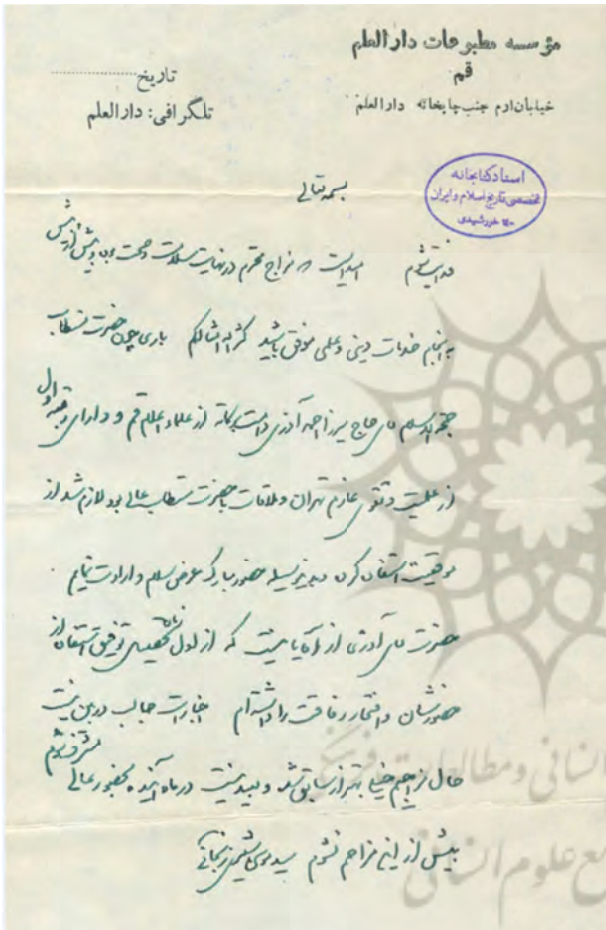 مؤسسه مطبوعات دارالعلم
قم
خیابان ارم جنب چاپخانه دارالعلم
تاریخ..............
تلگرافی: دارالعلم
اسناد کتابخانه
تخصصی تاریخ اسلام و ایران
بسمه تعالی
فدایت شوم امید است مزاج محترم در نهایت سلامت و صحت بوده و بیش از پیش
به انجام خدمات دینی و علمی موفق باشید کثر الله امثالکم باری چون حضرت مستطاب
حجةالاسلام آقای حاج میرزا احمد آذری دامت برکاته از علماء اعلام قم و دارای رتبه اول
از علمیت و تقوی عازم تهران و ملاقات با حضرت مستطاب عالی بود لازم شد از
موقعیت استفاده کرده و بدینوسیله حضور مبارک عرض سلام و ارادت نمایم.
حضرت آقای آذری از آقایانیست که از اول تحصیلی توفیق استفاده از
حضورشان و افتخار رفاقت را داشته‌ام اخبارات جالب در بین نیست
حال مزاجم خیلی بهتر از سابق شده و بعید نیست در ماه آینده بحضور عالی مشرف شوم
بیش از این مزاحم نشوم سید موسی شبیری زنجانی
انسانی و مطالعات فرهنگی
علوم انسانی